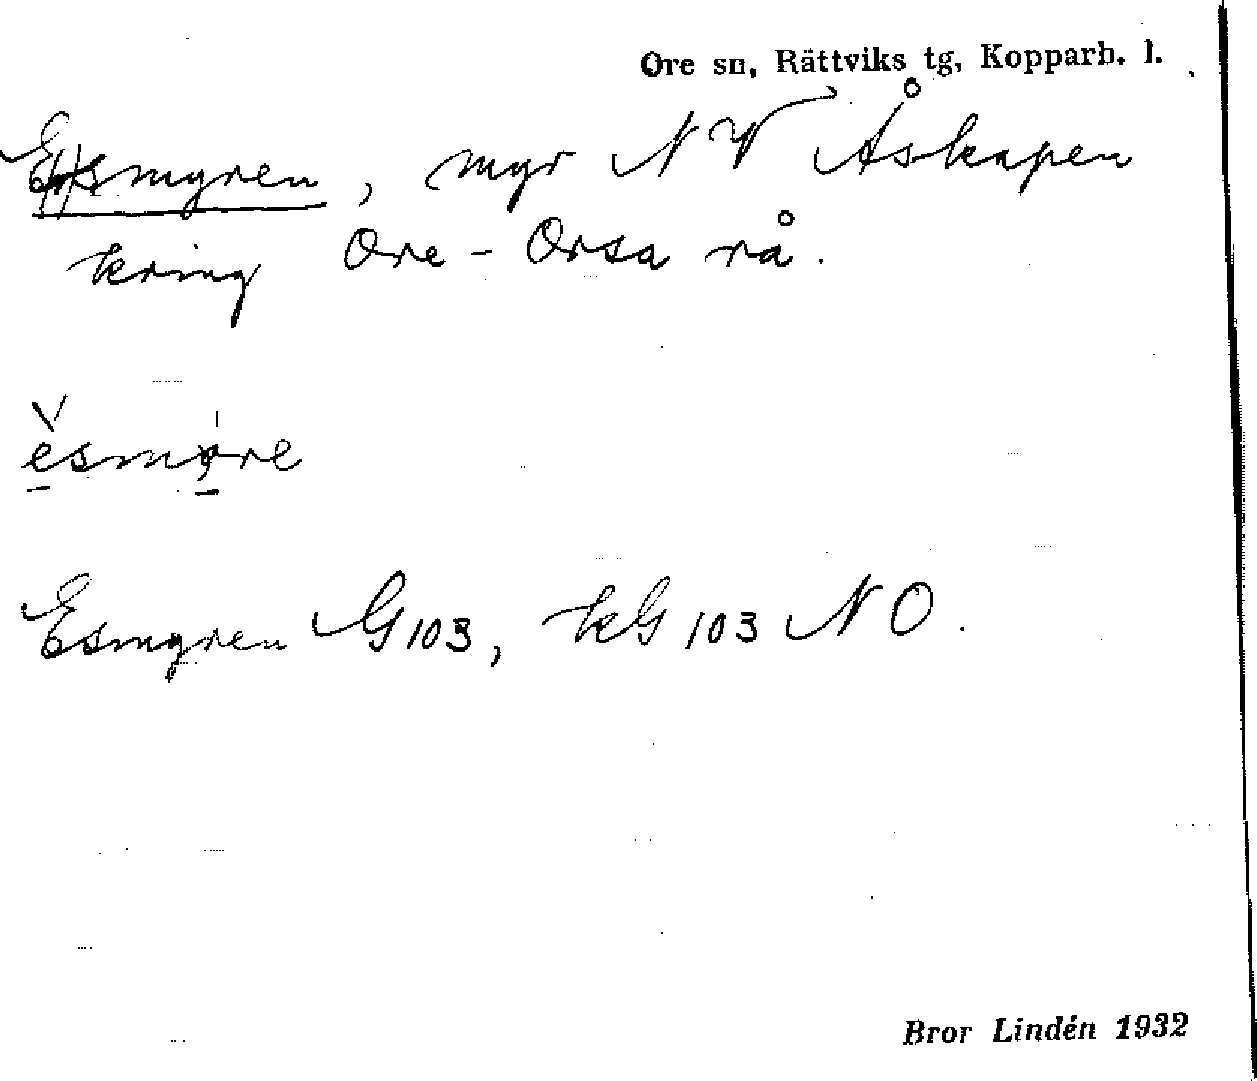 Ore sn, Rättviks tg, Kopparb. l.
Esmyren, myr NV Åskapen
kring Ore - Orsa rå.
Esmyren G103, kG103 NO.
Bror Lindén 1932